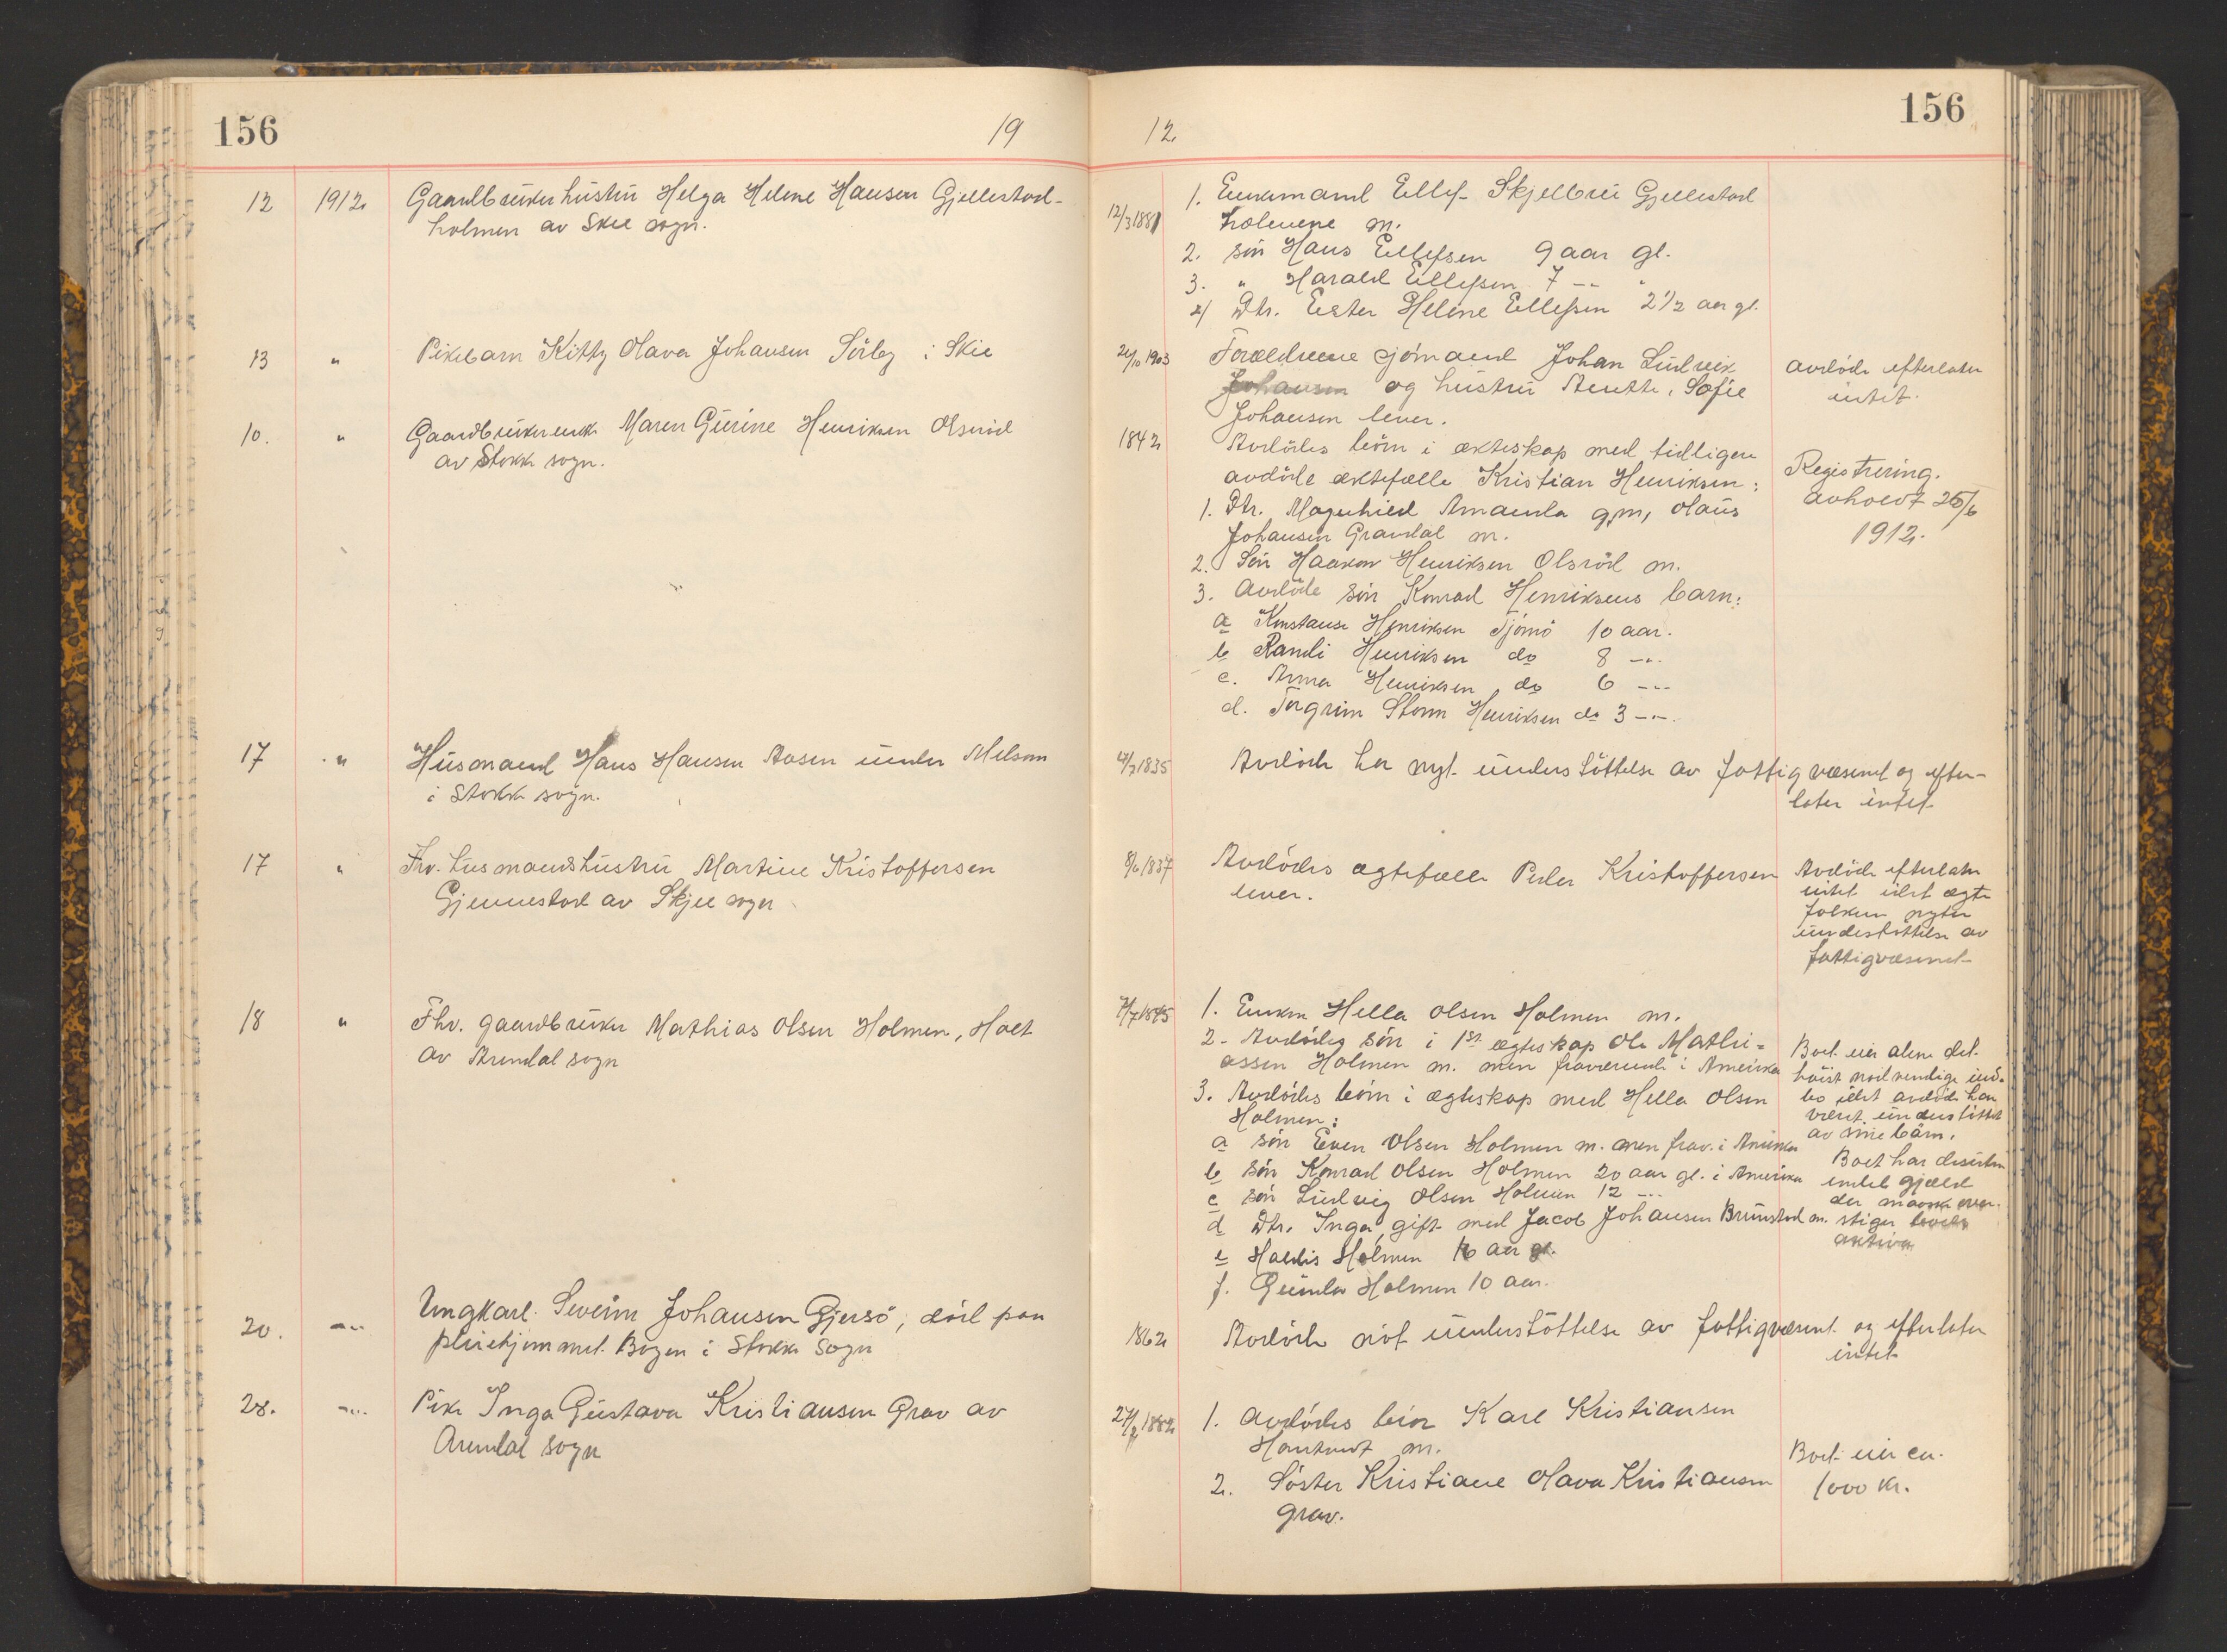 156
19
12
156
12 1912 Gaardbrukerhustru Helga Helene Hansen Gjellestad-
holmen av Skee sogn.
12/3 1881 1. Enkemand Ellef Skjelbrei Gjellestad
holmene m.
2. søn Hans Ellefsen 9 aar gl.
3. " Harald Ellefsen 7 -"- "
4) Dtr. Ester Helene Ellefsen 2 1/2 aar gl.
13 " Pikebarn Kitty Olava Johansen Sørby i Skie
1903 Forældrene sjømand Johan Ludvik
Johansen og hustru Sofie
Johansen lever.
avdøde efterlater
intet.
10. " Gaardbrukerenke Maren Gurine Henriksen Olsrød
av Stokke sogn.
1842 Avdødes børn i ekteskap med tidligere
avdøde ektefælle Kristian Henriksen:
1. Dtr. Magnhild Amanda g,m, Olaus
Johansen Grandal m.
2. Søn Haakon Henriksen Olsrød m.
3. Avdøde søn Konrad Henriksens barn:
a Konstanse Henriksen Tjømø 10 aar.
b Randi Henriksen do 8 -"-
c. Anna Henriksen do 6 -"-
d. Torgrim Storm Henriksen do 3 -"-
Registrering.
avholdt 25/6
1912.
17 " Husmand Hans Hansen Aasen under Melsom
i Stokke sogn.
1835 Avdøde har nyt understøttelse av fattigvæsenet og efter-
later intet
17 " Frv. husmandshustru Martine Kristoffersen
Gjennestad av Skjee sogn
8/6 1837 Avdødes ægtefælle Peder Kristoffersen
lever.
Avdøde efterlater
intet idet ægte
folkene nyter
undestøttelse av
fattigvæsenet
18 " Fhv. gaardbruker Mathias Olsen Holmen, Holt
av Arendal sogn
7/7 1845 1. Enken Hella Olsen Holmen m.
2. Avdødes søn i 1st ægteskap Ole Mathi-
assen Holmen m. men fraværende i Amerika
3. Avdødes børn i ægteskap med Hella Olsen
Holmen:
a søn Even Olsen Holmen m. men frav. i Amerika
b søn Konrad Olsen Holmen 20 aar gl. i Amerika
c søn Ludvig Olsen Holmen 12 -"-
d Dtr. Inga gift med Jacob Johansen Brunstad m.
e Haldis Holmen 16 aar gl.
f. Gunda Holmen 10 aar.
Boet eier alene det
høist nødvendige ind-
bo idet avdøde har
været understøttet
av sine børn.
Boet har desuten
endel gjæld
der maaske over-
stiger boets
aktiva
20. -"- Ungkarl Severin Johansen Gjersø, død paa
pleiehjemmet Bogen i Stokke Sogn
1862 Avdøde nøt understøttelse av fattigvæsenet og efterlater
intet
28. -"- Pike Inga Gustava Kristiansen Grav av
Arendal sogn
1882 1. avdødes bror Karl Kristiansen
m.
2. Søster Kristiane Olava Kristiansen
Grav.
Boet eier ca.
1000 kr.